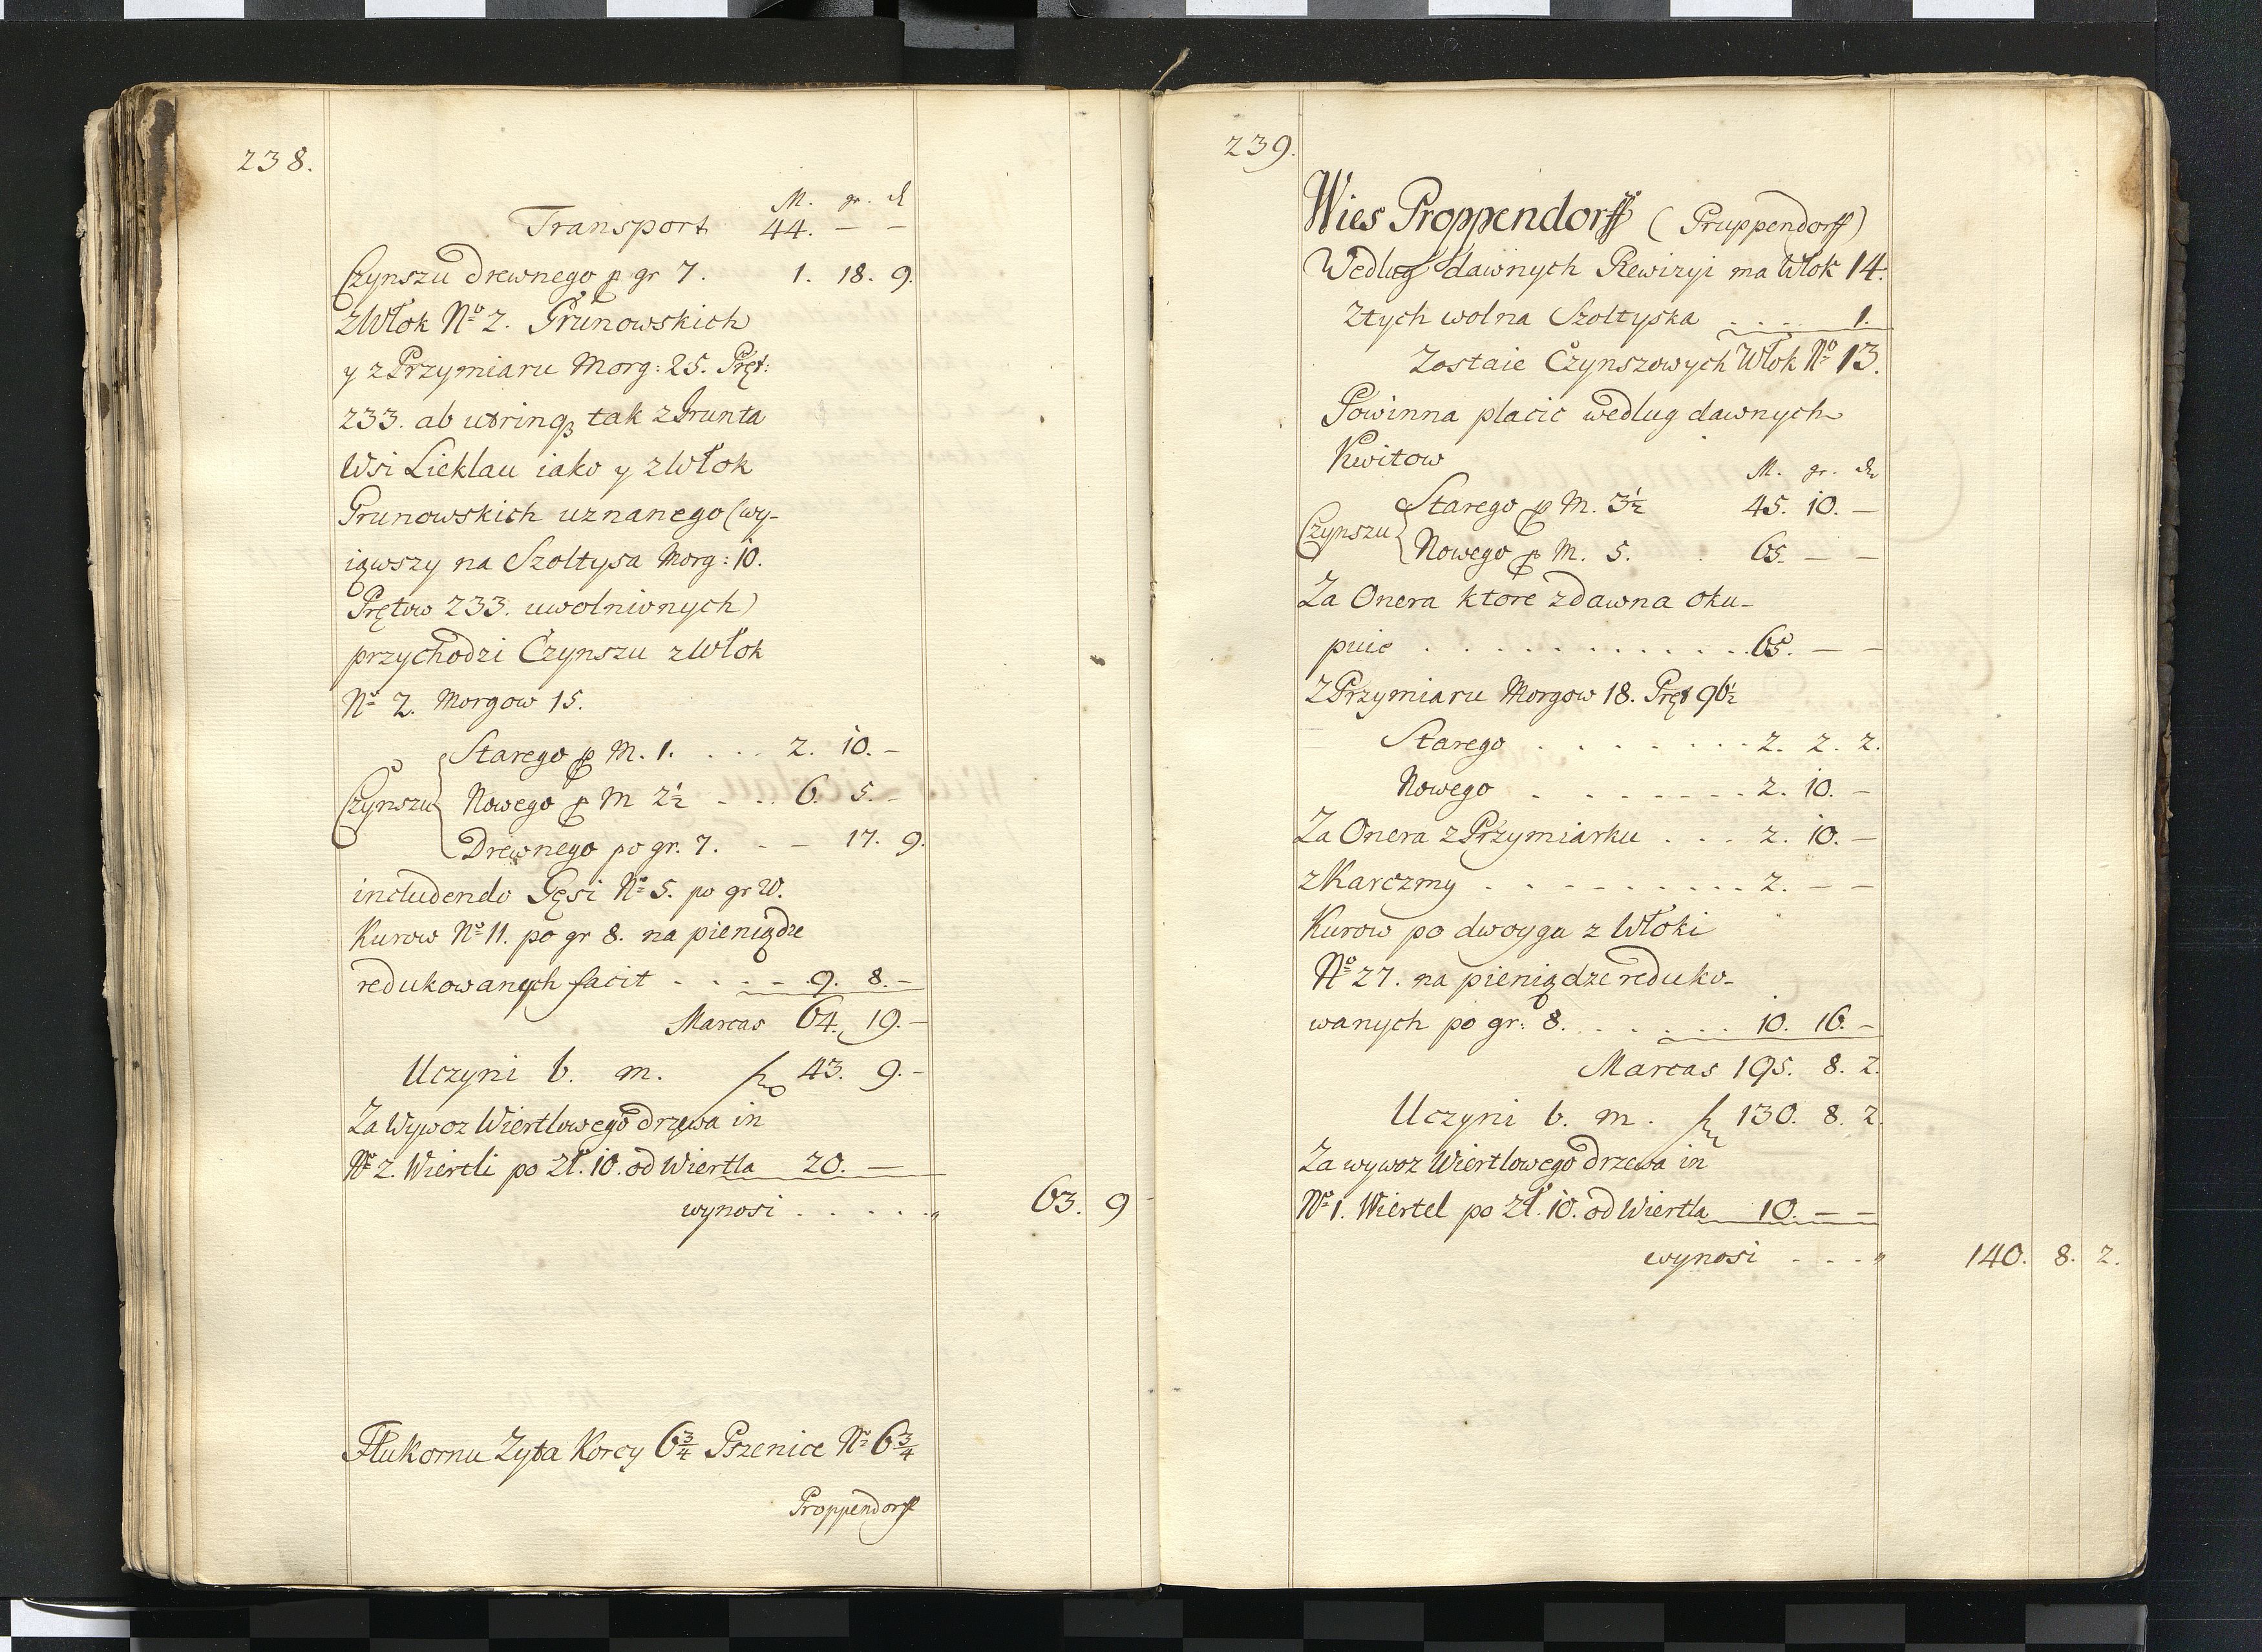 238.
M. gr. d
Transport 44. — —
Czynszu drewnego p gr 7. 1. 18. 9.
z Włok No 2. Grunowskich
y z Przymiaru Morg: 25. Pręt:
233. ab utrinq tak z Grunta
Wsi Lieklau iako y z Włok
Grunowskich uznanego (wy-
iąwszy na Szoltysa Morg: 10.
Prętow 233. uwolnionych)
przychodzi Czynszu z Włok
No 2. Morgow 15.
Starego p M. 1. . . . 2. 10. —
Czynszu Nowego p M 2½ . . . 6. 5. —
Drewnego po gr. 7. . — 17. 9.
includendo Gęsi No 5. po gr 20.
Kurow No 11. po gr 8. na pieniądze
redukowanych facit . . . . . 9. 8. —
Marcas 64. 19. —
Uczyni b. m. fl 43. 9. —
Za Wywoz Wiertlowego drzewa in
No 2. Wiertli po Zł. 10. od Wiertla 20. —
wynosi . . . . . " 63. 9 —
Flukornu Zyta Korcy 6¾ Pszenice No 6¾
Proppendorff
239.
Wies Proppendorff (Pruppendorff)
Wedlug dawnych Rewizyi ma Włok 14.
Ztych wolna Szoltyska . . . . 1.
Zostaie Czynszowych Włok No 13.
Powinna placic wedlug dawnych
Kwitow M. gr. d
Starego p M. 3½ 45. 10. —
Czynszu Nowego p M. 5. . 65. — —
Za Onera ktore zdawna oku-
puie . . . . . . . . . . . . 65. — —
Z Przymiaru Morgow 18. Pręt 96½
Starego . . . . . . . . 2. 2. 2.
Nowego . . . . . . . . 2. 10. —
Za Onera z Przymiarku . . . 2. 10. —
z Karczmy . . . . . . . . . . 2. — —
Kurow po dwoyga z Włoki
No 27. na pieniądze reduko-
wanych po gr: 8. . . . . . . 10. 16. —
Marcas 195. 8. 2.
Uczyni b. m. fl 130. 8. 2
Za wywoz Wiertlowego drzewa in
No 1. Wiertel po Zł. 10. od Wiertla 10. — —
wynosi . . . " 140. 8. 2.